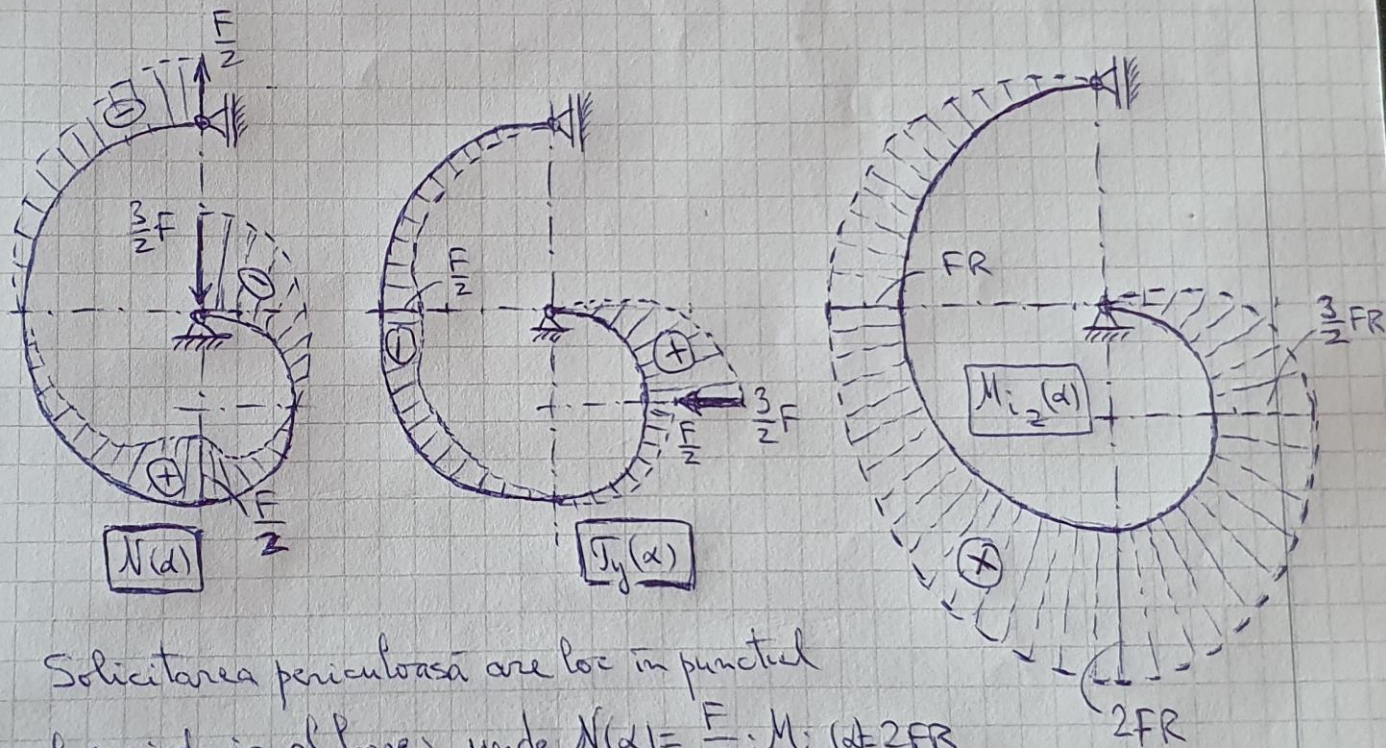 F/2
3/2 F
F/2
FR
3/2 FR
⊖
⊖
⊖
⊕
3/2 F
F/2
M_{i_2}(α)
⊕
F/2
⊕
N(α)
T_y(α)
2FR
Solicitarea periculoasă are loc în punctul
unde N(α)= F/ ; M_i (α)=2FR